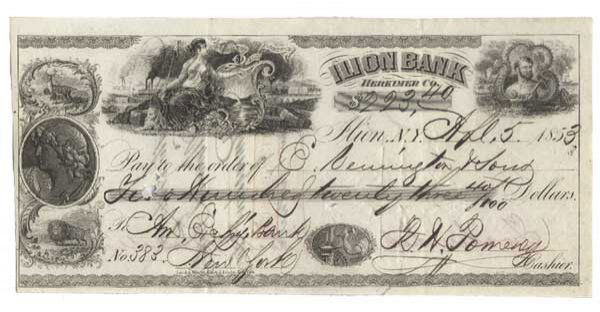 ILION BANK
HERKIMER CO.
$223,40
Ilion, N.Y. Apl. 5. 1853
Pay to the order of E. Remington & Sons
Two Hundred twenty three 40/100 Dollars.
To Am. Exchg Bank
No. 383. New York
Cashier.